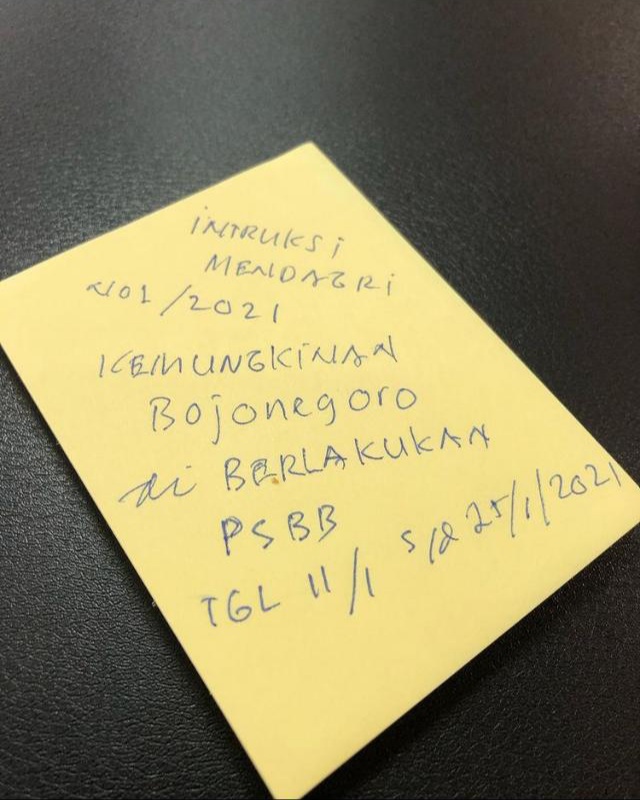 INTRUKSI
MENDAGRI
NO1/2021
KEMUNGKINAN
Bojonegoro
di BERLAKUKAN
PSBB
TGL 11/1 s/d 25/1/2021